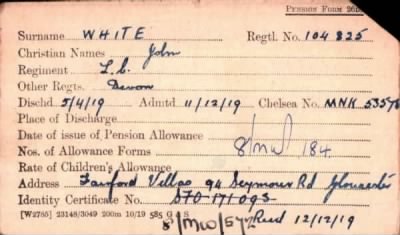 PENSION FORM 26
Surname WHITE Regtl. No. 104825
Christian Names John
Regiment L.C.
Other Regts. Devon
Dischd 5/4/19 Admtd 11/12/19 Chelsea No. MNK 53576
Place of Discharge
Date of issue of Pension Allowance
Nos. of Allowance Forms 8/MW/ 184.
Rate of Children's Allowance
Address Fairford Villas 94 Seymour Rd Gloucester
Identity Certificate No. 570-171095
[W2785] 23148/3049 200m 10/19 585 G & S
8/MW/572 Recd 12/12/19